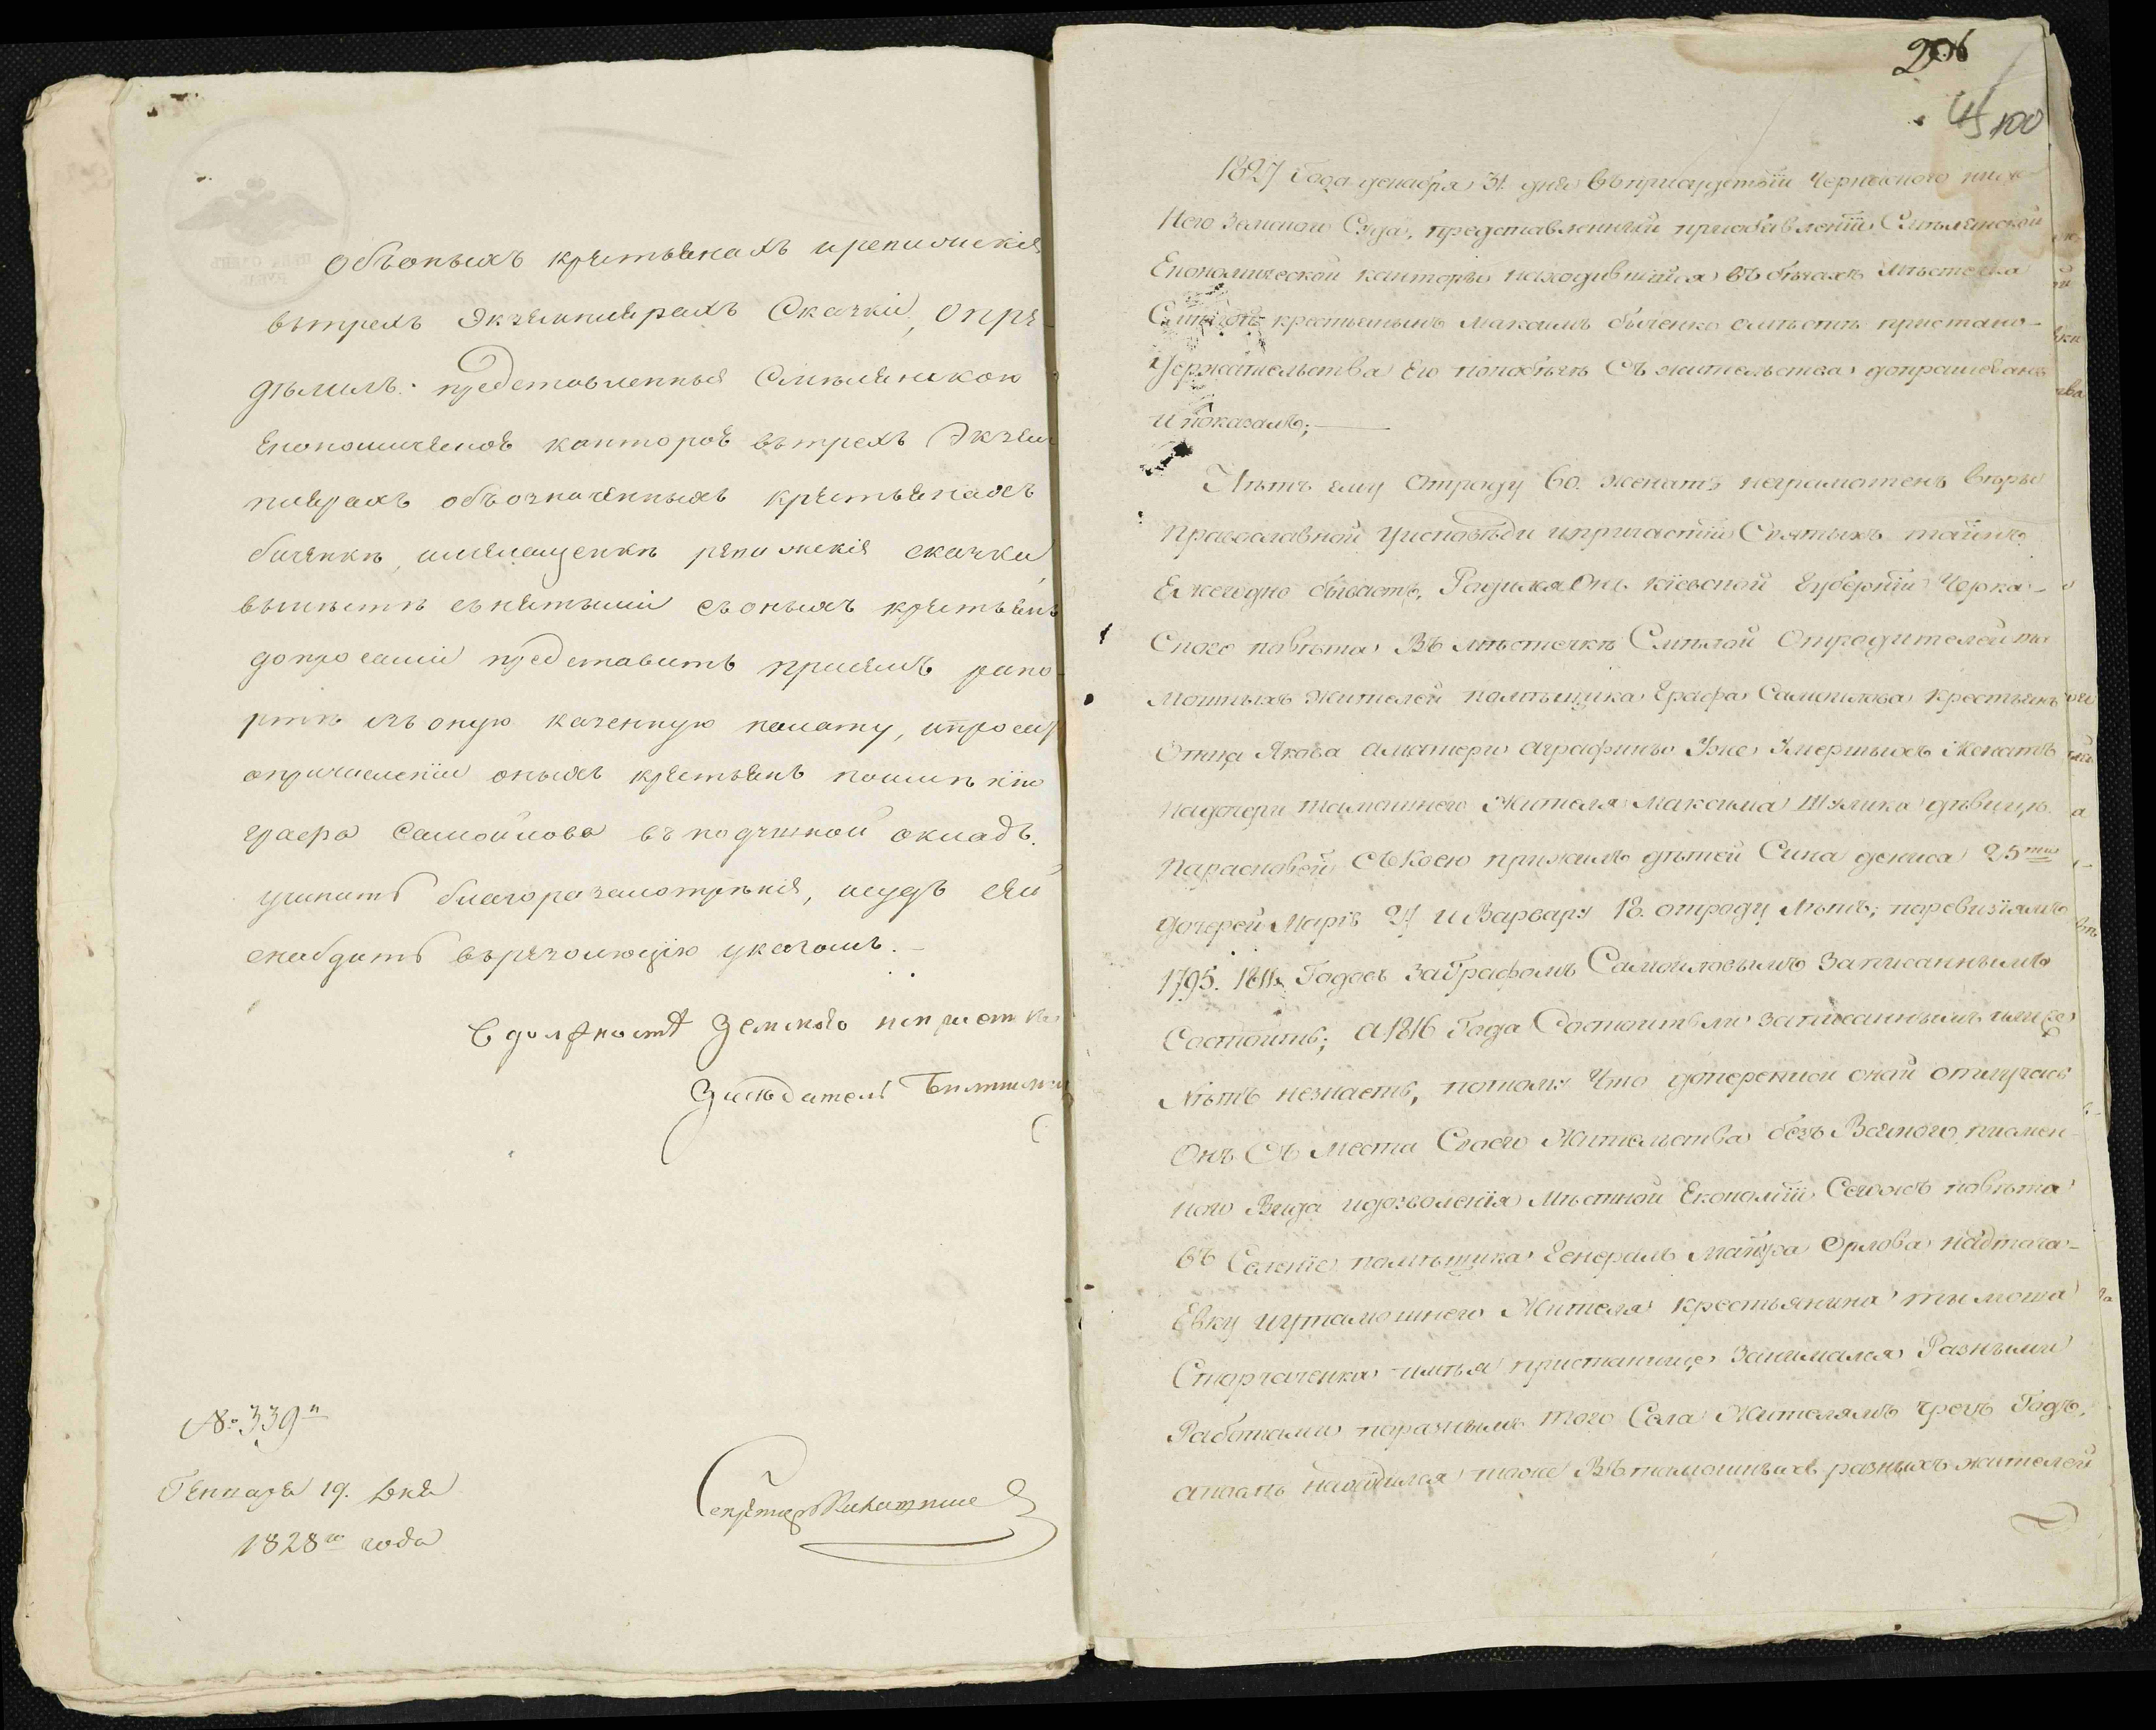 объоныхъ крестьянахъ иревижскія
вътрехъ Экземплярахъ Скаски, Опре-
дѣлилъ: представленныя Смѣлянскою
Економическою канторою вътрехъ Экзем
плярахъ объозначенныхъ крестьянахъ
ревижскія скаски,
вымѣстѣ съ оныхъ крестьянъ
допросами представить при рапо-
ртѣ въ оную казенную палату, ипросит
опричисленіи оныхъ крестьянъ
графа Самойлова въ подушной окладъ.
учинить благоразсмотреніе, исудъ сей
снабдить върезолюцію указомъ.-
В должност Земского
Засѣдатель
№ 339й
Генваря 19. дня
1828го года
Секретарь
206
45 100
1827 Года декабря 31 дня въприсудствіи Черкаского ниж-
Него Земского Суда, представленный приобявленіи Смѣлянской
Економической канторы находившійся въ бѣгахъ мѣстечка
крестьянинъ Максимъ пристано-
держательства Его съ жительства допрашиванъ
и показалъ;
Лѣтъ ему отроду 60. женатъ неграмотенъ вѣры
православной уисповѣди ипричастіи Святыхъ тайнъ
Ежегодно бываетъ, Родился Онъ кіевской Губерніи Черка-
Ского повѣта Въ мѣстечкѣ Смѣлой Отродителей та-
мошныхъ жителей помѣщика Графа Самойлова крестьянъ
Отца Якова аматери аграфины Уже Умершыхъ Женатъ
Надочери тамошнего Жителя Максима дѣвицѣ
Парасковѣи, Съ Коею прижилъ дѣтей Сина дениса 25ти
дочерей Марію 21 и Варвару 18. отроду Лѣтъ; поревизіямъ
1795. 1811 Годовъ заГрафомъ Самойловымъ Записаннымъ
Состоитъ; а 1816 Года Состоитъли записаннымъ или
Нѣтъ незнаетъ, потому Что доперепыси оной отлучась
Онъ Съ места Своего Жительства безъ писмен-
ного Вида идозволенія мѣстной Економіи Сегожъ повѣта
въ Селеніе помѣщика Генералъ маіора Орлова
Евку иутамошнего Жителя крестьянина
имѣя пристанище Занимался Разными
Работами поразнымъ того Села Жителямъ Чрезъ Годъ,
находился тоже Вътамошныхъ разныхъ жителей